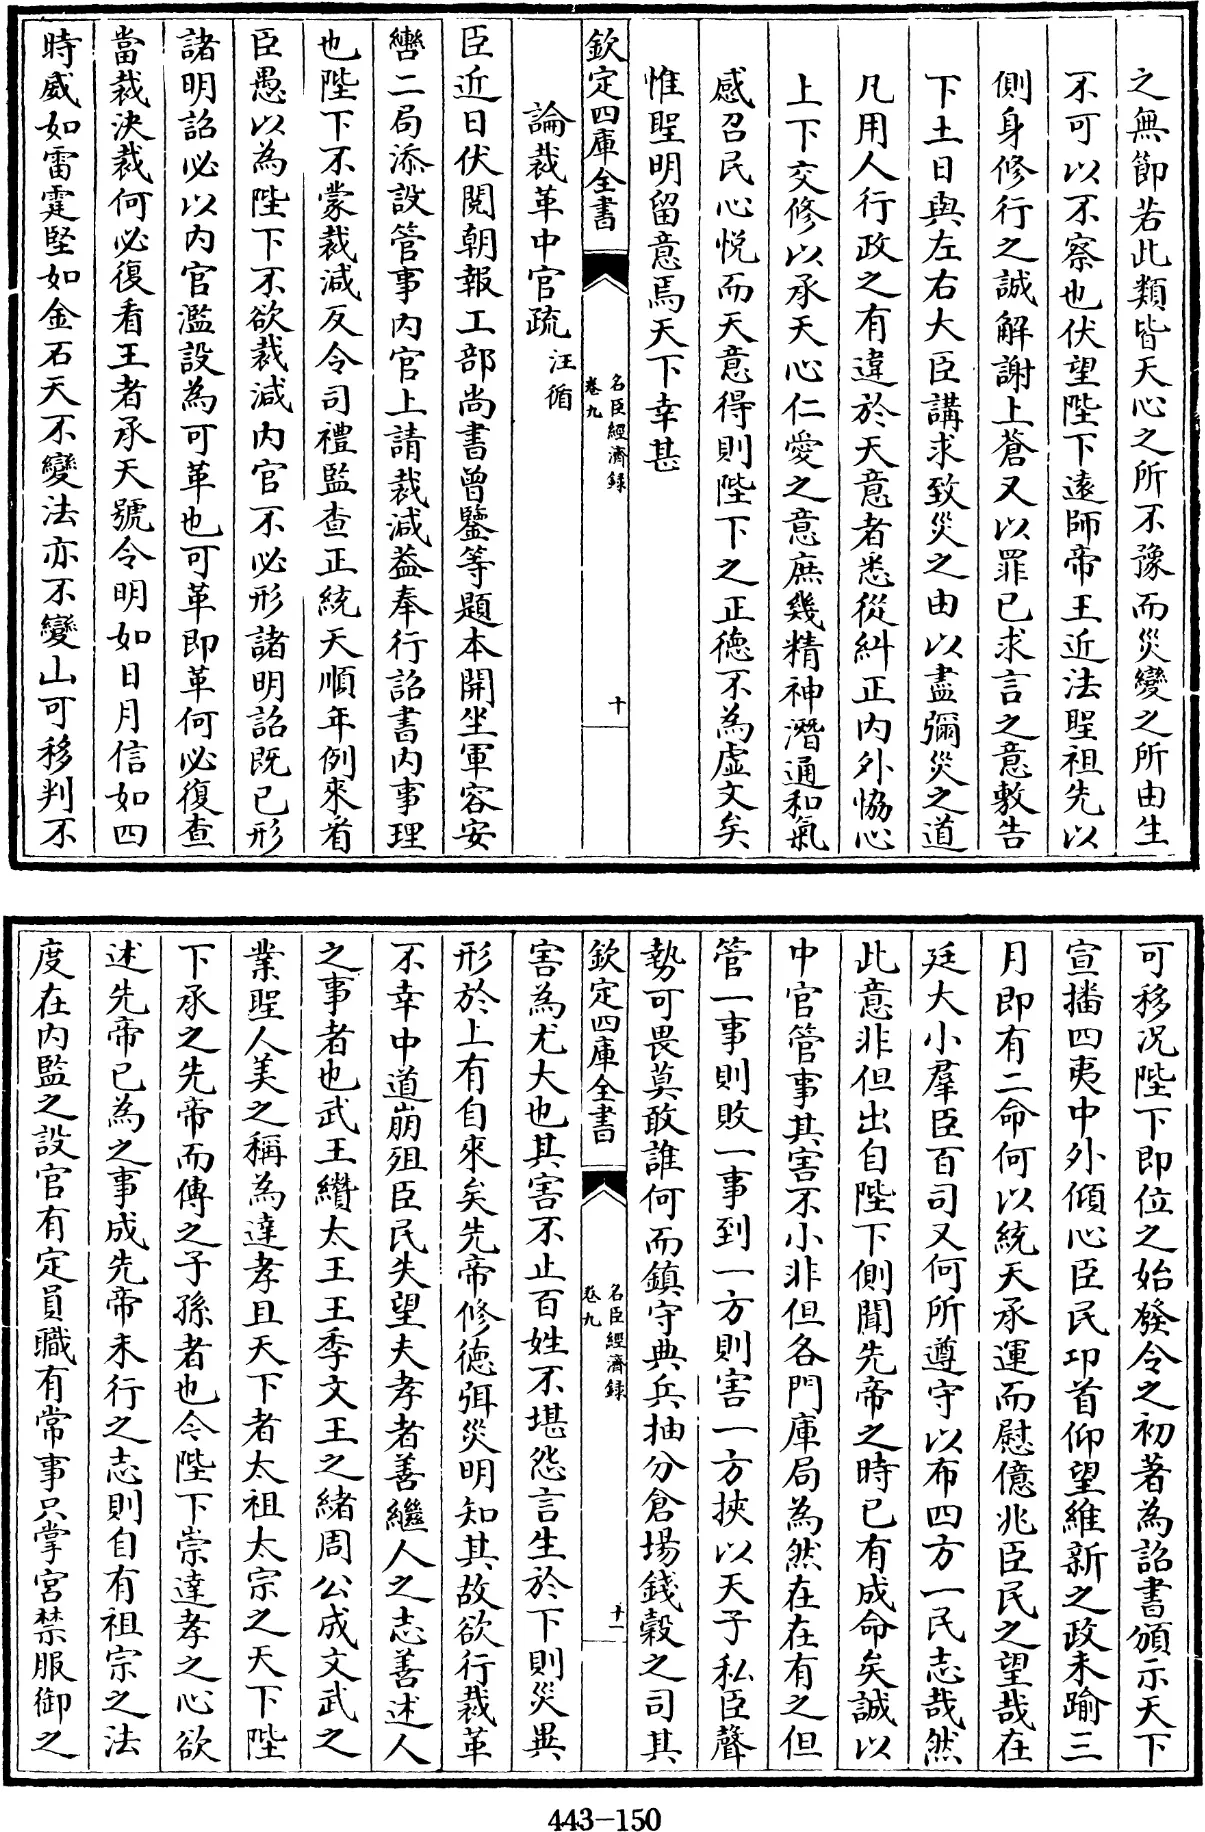 之無節若此類皆天心之所不豫而災變之所由生
不可以不察也伏望陛下遠師帝王近法聖祖先以
側身修行之誠解謝上蒼又以罪已求言之意敷告
下土日與左右大臣講求致災之由以盡彌災之道
凡用人行政之有違於天意者悉從糾正内外恊心
上下交修以承天心仁愛之意庶幾精神潛通和氣
感召民心悦而天意得則陛下之正德不為虚文矣
惟聖明留意焉天下幸甚
欽定四庫全書
名臣經濟録
卷九
十
論裁革中官疏 汪循
臣近日伏閲朝報工部尚書曾鑒等題本開坐軍容安
轡二局添設管事内官上請裁減葢奉行詔書内事理
也陛下不蒙裁減反令司禮監查正統天順年例來㸔
臣愚以為陛下不欲裁減内官不必形諸明詔既已形
諸明詔必以内官濫設為可革也可革即革何必復查
當裁决裁何必復看王者承天號令明如日月信如四
時威如雷霆堅如金石天不變法亦不變山可移判不
可移况陛下即位之始發令之初著為詔書頒示天下
宣播四夷中外傾心臣民卬首仰望維新之政未踰三
月即有二命何以統天承運而慰億兆臣民之望哉在
廷大小羣臣百司又何所遵守以布四方一民志哉然
此意非但出自陛下側聞先帝之時已有成命矣誠以
中官管事其害不小非但各門庫局為然在在有之但
管一事則敗一事到一方則害一方挾以天子私臣聲
勢可畏莫敢誰何而鎮守典兵抽分倉場錢穀之司其
欽定四庫全書
名臣經濟録
卷九
十一
害為尤大也其害不止百姓不堪怨言生於下則災異
形於上有自來矣先帝修德弭災明知其故欲行裁革
不幸中道崩殂臣民失望夫孝者善繼人之志善述人
之事者也武王纘太王王季文王之緒周公成文武之
業聖人美之稱為達孝且天下者太祖太宗之天下陛
下承之先帝而傳之子孫者也今陛下崇達孝之心欲
述先帝已為之事成先帝未行之志則自有祖宗之法
度在内監之設官有定員職有常事只掌宫禁服御之
443-150